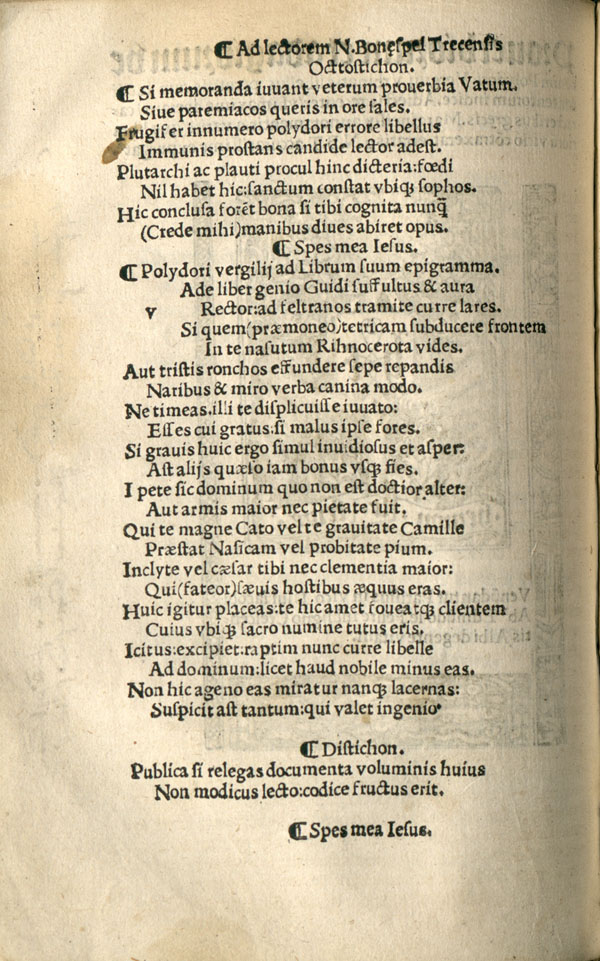 ¶ Ad lectorem N. Bonęspei Trecensis
Octostichon.
¶ Si memoranda iuuant veterum prouerbia Vatum.
Siue paremiacos queris in ore sales.
Frugifer innumero polydori errore libellus
Immunis prostans candide lector adest.
Plutarchi ac plauti procul hinc dicteria:fœdi
Nil habet hic:sanctum constat vbiqȝ sophos.
Hic conclusa forēt bona si tibi cognita nunq̄
(Crede mihi)manibus diues abiret opus.
¶ Spes mea Iesus.
¶ Polydori vergilij ad Librum suum epigramma.
Ade liber genio Guidi suffultus & aura
v Rector:ad feltranos tramite curre lares.
Si quem(præmoneo)tetricam subducere frontem
In te nasutum Rihnocerota vides.
Aut tristis ronchos effundere sepe repandis
Naribus & miro verba canina modo.
Ne timeas.illi te displicuisse iuuato:
Esses cui gratus:si malus ipse fores.
Si grauis huic ergo simul inuidiosus et asper:
Ast alijs quæso iam bonus vsqȝ fies.
I pete sic dominum quo non est doctior alter:
Aut armis maior nec pietate fuit.
Qui te magne Cato vel te grauitate Camille
Præstat Nasicam vel probitate pium.
Inclyte vel cæsar tibi nec clementia maior:
Qui(fateor)sæuis hostibus æquus eras.
Huic igitur placeas:te hic amet foueatqȝ clientem
Cuius vbiqȝ sacro numine tutus eris.
Icitus:excipiet:raptim nunc curre libelle
Ad dominum:licet haud nobile minus eas.
Non hic ageno eas miratur nanqȝ lacernas:
Suspicit ast tantum:qui valet ingenio.
¶ Distichon.
Publica si relegas documenta voluminis huius
Non modicus lecto:codice fructus erit.
¶ Spes mea Iesus.